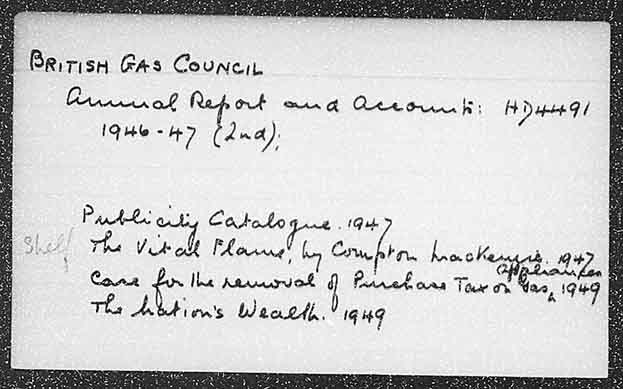 BRITISH GAS COUNCIL
Annual Report and Accounts: HD4491
1946-47 (2nd);
Publicity Catalogue. 1947
Shelf The Vital Flame, by Compton Mackenzie. 1947
Case for the removal of Purchase Tax on Gas appliances, 1949
The Nation's Wealth. 1949